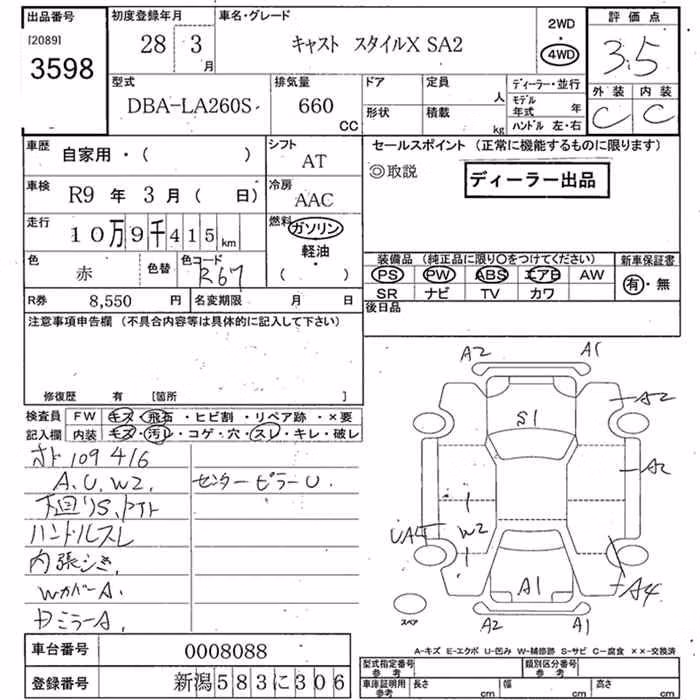 出品番号 初度登録年月 車名・グレード 2WD 評価点
[2089] 28 3月 キャスト スタイルX SA2 4WD 3.5
3598 外装 内装
型式 排気量 ドア 定員 人 ディーラー・並行 C C
DBA-LA260S 660 CC 形状 積載 kg モデル年式 年
ハンドル 左・右
車歴 自家用・( ) シフト AT セールスポイント (正常に機能するものに限ります)
◎取説 ディーラー出品
車検 R9 年 3 月 ( 日) 冷房 AAC
走行 10万9千415km 燃料 ガソリン
軽油
( )
色 赤 色替 色コード R67
装備品 (純正品に限り○をつけてください) 新車保証書
PS PW ABS エアB AW 有・無
SR ナビ TV カワ
R券 8,550 円 名変期限 月 日 後日品
注意事項申告欄 (不具合内容等は具体的に記入して下さい)
修復歴 有 [箇所 ]
検査員 FW キズ・飛石・ヒビ割・リペア跡・×要
記入欄 内装 キズ・汚レ・コゲ・穴・スレ・キレ・破レ
109416
A.U.W2. センターピラーU.
下回りS.
ハンドルスレ
内張シミ.
WカバーA.
DミラーA.
A2 A1
S1 A2
A2
UA4 W2
A1 A4
スペア A2 A1
A-キズ E-エクボ U-凹み W-補修跡 S-サビ C-腐食 ××-交換済
車台番号 0008088
登録番号 新潟583に306
型式指定番号 参考 類別区分番号 参考
車庫証明用 参考 長さ cm 幅 cm 高さ cm